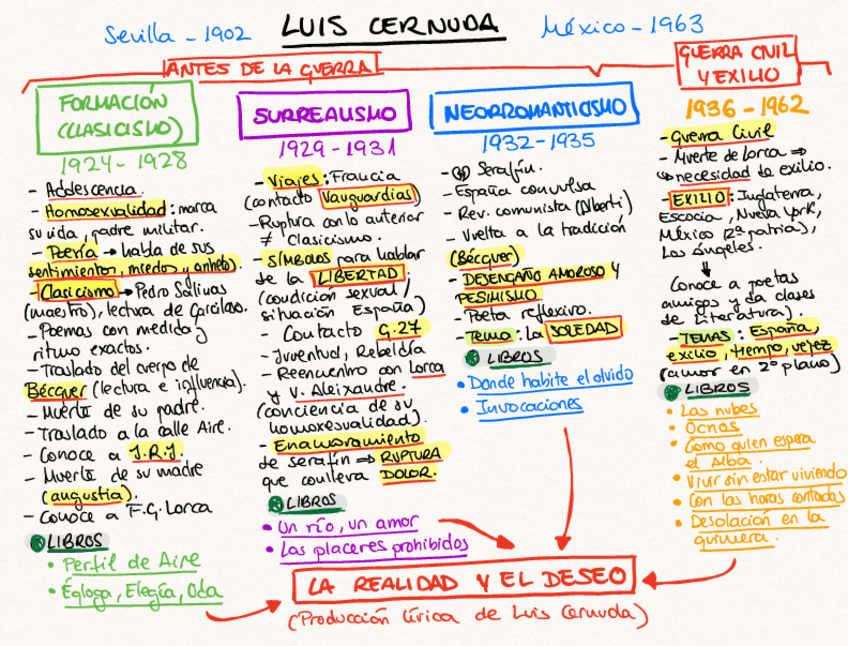 Sevilla - 1902
LUIS CERNUDA
México - 1963
ANTES DE LA GUERRA
GUERRA CIVIL
Y EXILIO
FORMACIÓN
(CLASICISMO)
1924 - 1928
- Adolescencia.
- Homosexualidad: marca
su vida, padre militar.
- Poesía → habla de sus
sentimientos, miedos y anhelos.
- Clasicismo → Pedro Salinas
(maestro), lectura de Garcilaso.
- Poemas con medida y
ritmo exactos.
- Traslado del cuerpo de
Bécquer (lectura e influencia).
- Muerte de su padre.
- Traslado a la calle Aire.
- Conoce a J.R.J.
- Muerte de su madre
(angustia).
- Conoce a F.G. Lorca
LIBROS
• Perfil de Aire
• Égloga, Elegía, Oda
SURREALISMO
1929 - 1931
- Viajes: Francia
(contacto Vanguardias)
- Ruptura con lo anterior
≠ Clasicismo.
- SÍMBOLOS para hablar
de la LIBERTAD
(condición sexual /
situación España)
- Contacto G.27
- Juventud, Rebeldía
- Reencuentro con Lorca
y V. Aleixandre.
(conciencia de su
homoxesualidad).
- Enamoramiento
de Serafín ⇒ RUPTURA
que conlleva DOLOR.
LIBROS
• Un río, un amor
• Los placeres prohibidos
NEORROMANTICISMO
1932 - 1935
- Serafín.
- España convulsa
- Rev. comunista (Alberti)
- Vuelta a la tradición
(Bécquer)
- DESENGAÑO AMOROSO Y
PESIMISMO
- Poeta reflexivo.
- Tema: La SOLEDAD
LIBROS
• Donde habite el olvido
• Invocaciones
1936 - 1962
- Guerra Civil
- Muerte de Lorca ⇒
↳ necesidad de exilio.
- EXILIO: Inglaterra,
Escocia, Nueva York,
México (2ª patria),
Los Ángeles.
↓
Conoce a poetas
amigos y da clases
de Literatura).
- TEMAS: España,
exilio, tiempo, vejez
(amor en 2º plano)
LIBROS
• Las nubes
• Ocnos
• Como quien espera
el Alba.
• Vivir sin estar viviendo
• Con las horas contadas
• Desolación en la
quimera.
LA REALIDAD Y EL DESEO
(Producción lírica de Luis Cernuda)